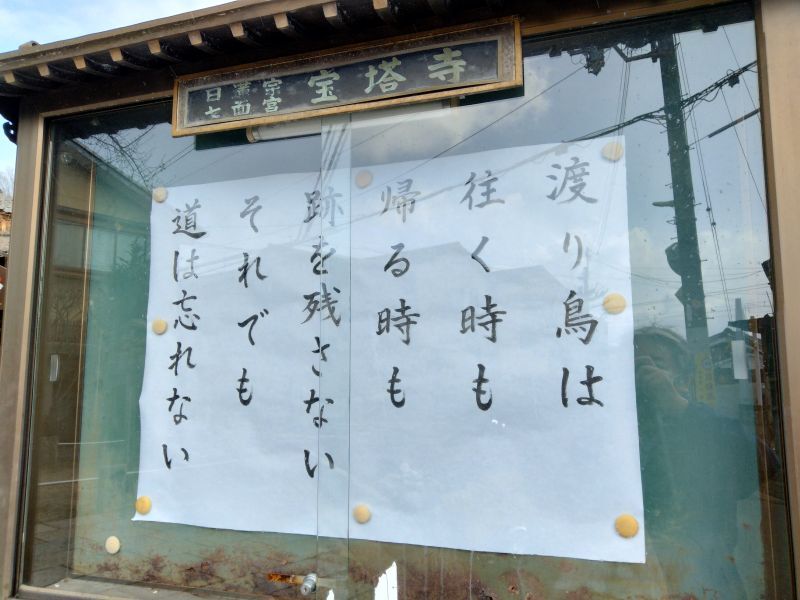 日蓮宗
七面宮
宝塔寺
渡り鳥は
往く時も
帰る時も
跡を残さない
それでも
道は忘れない